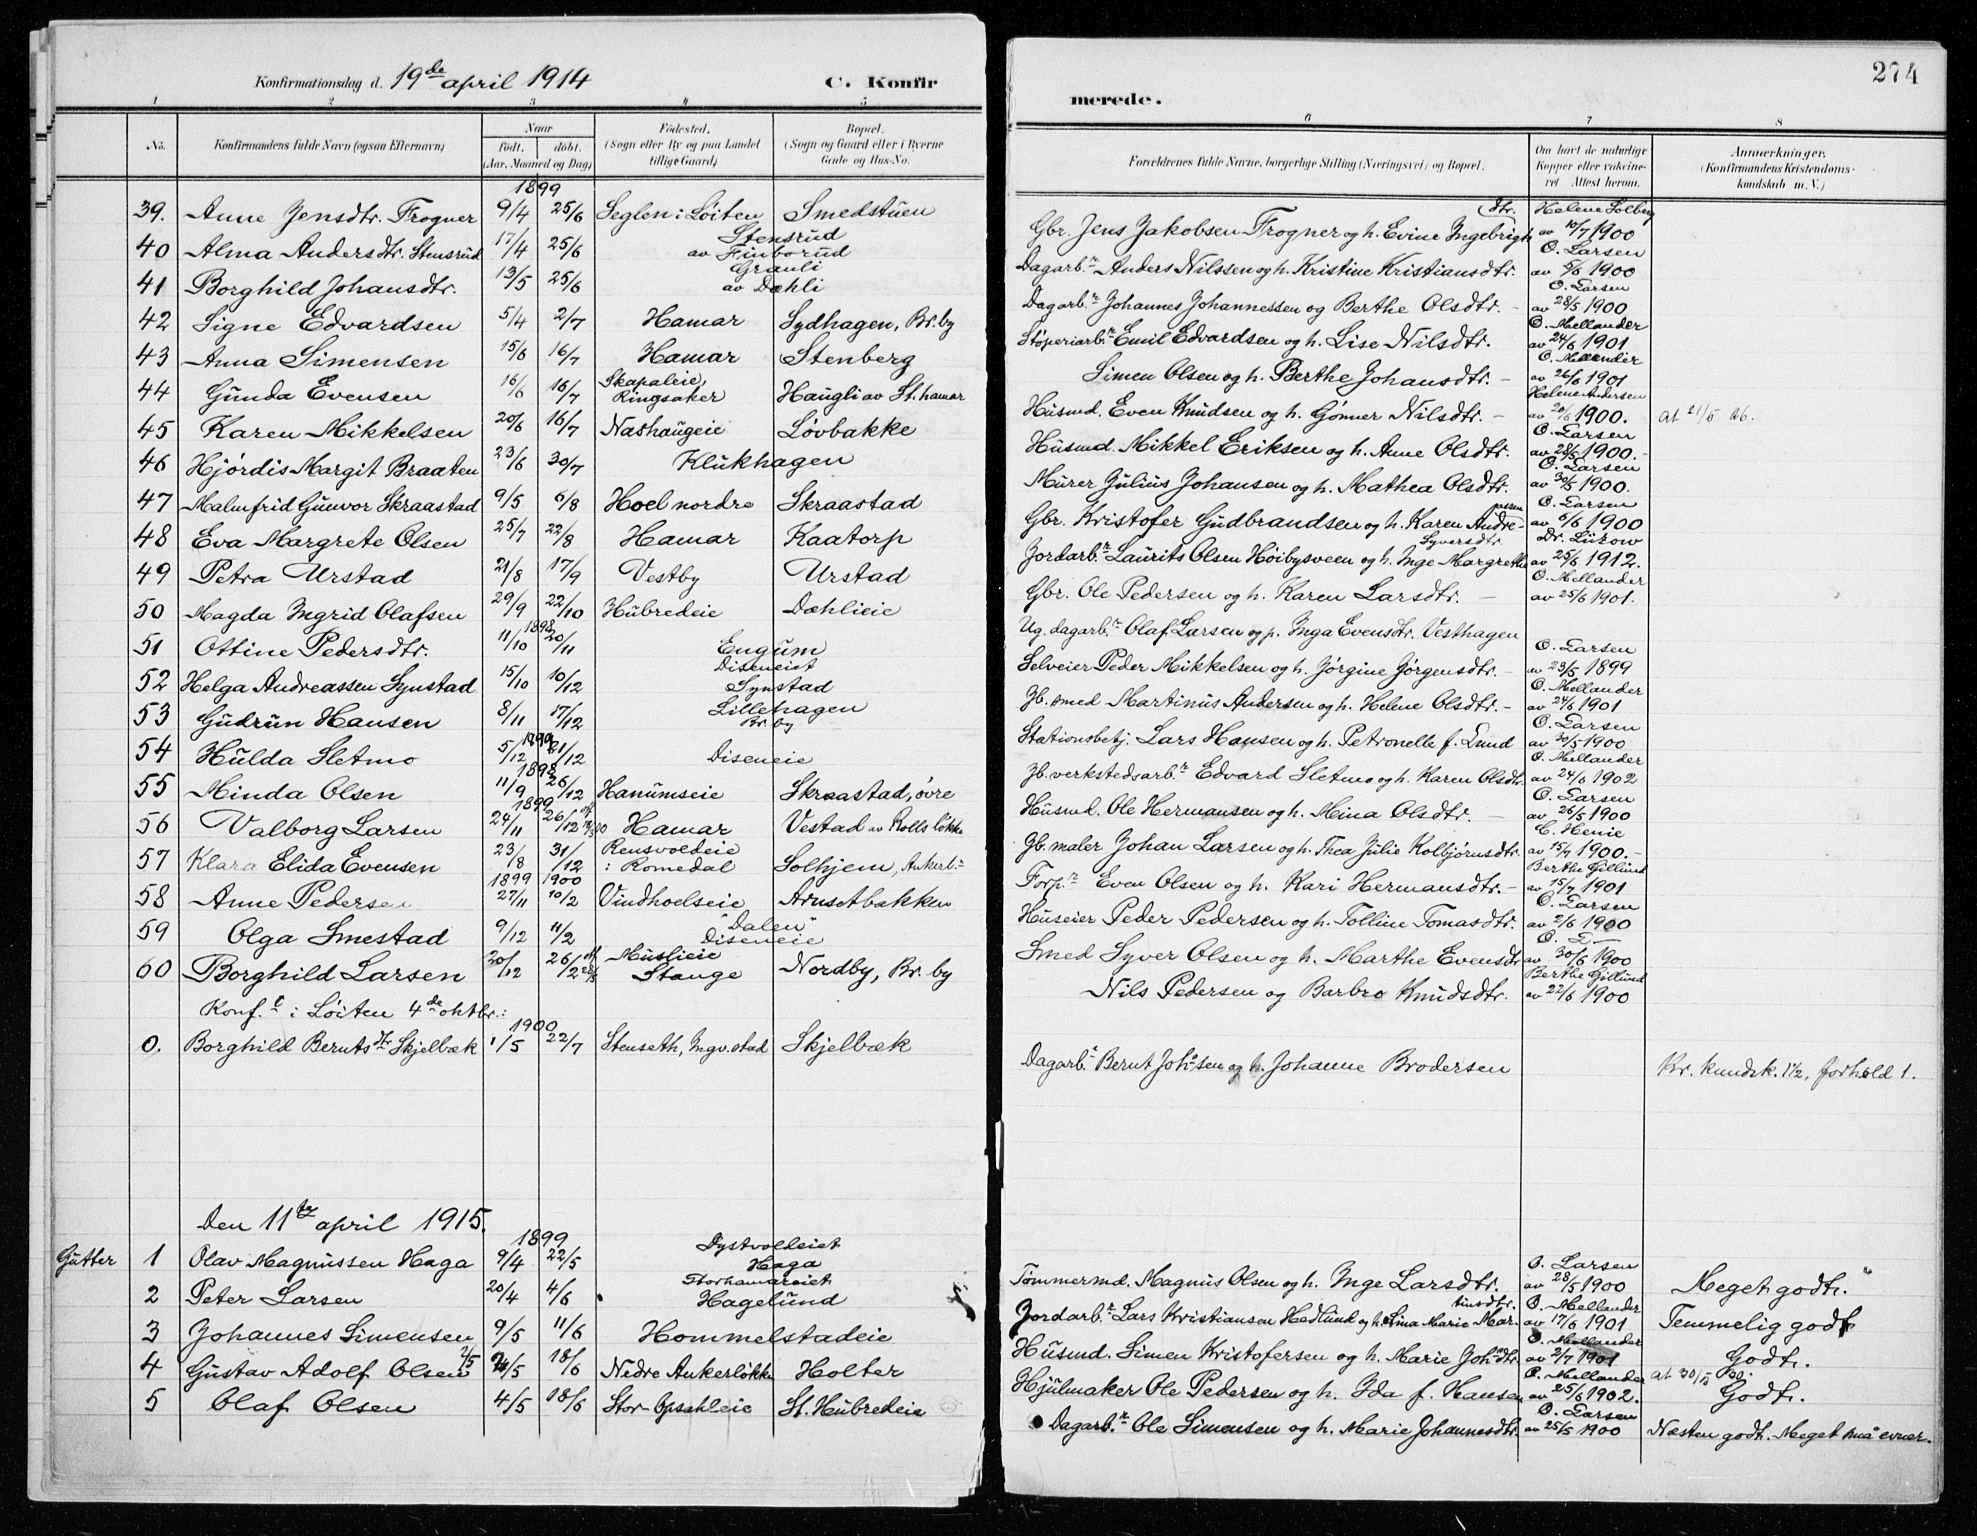 Konfirmationsdag d. 19de april 1914 C. Konfir
1 2 3 4 5
No. Konfirmandens fulde Navn (ogsaa Efternavn) Naar født. døbt. (Aar, Maaned og Dag) Fødested. (Sogn eller By og paa Landet tillige Gaard) Bopæl. (Sogn og Gaard eller i Byerne Gade og Hus-No.
1899
39. Anne Jensdtr. Frogner 9/4 25/6 Seglen i Løiten Smedstuen
40 Alma Andersdtr. Stensrud 17/4 25/6 Stensrud av Finborud
41 Borghild Johansdtr. 13/5 25/6 Granli av Dæhli
42 Signe Edvardsen 5/4 2/7 Hamar Sydhagen, Br. by
43 Anna Simensen 15/6 16/7 Hamar Stenberg
44 Gunda Evensen 16/6 16/7 Skapaleie, Ringsaker Haugli av St. hamar
45 Karen Mikkelsen 20/6 16/7 Nashaugeie Løvbakke
46 Hjørdis Margit Braaten 23/6 30/7 Klukhagen
47 Malmfrid Gunvor Skraastad 9/5 6/8 Hoel nordre Skraastad
48 Eva Margrete Olsen 25/7 22/8 Hamar Kaatorp
49 Petra Urstad 21/8 17/9 Vestby Urstad
50 Magda Ingrid Olafsen 29/9 22/10 Hubredeie Dæhlieie
1898
51 Ottine Pedersdtr. 11/10 20/11 Engum
52 Helga Andreassen Synstad 15/10 10/12 Diseneiet Synstad
53 Gudrun Hansen 8/11 17/12 Lillehagen Br. by
1899
54 Hulda Sletmo 5/12 21/12 Diseneie
1898
55 Minda Olsen 11/9 26/12 Hanumseie Skraastad, øvre
1899
56 Valborg Larsen 24/11 26/12 Hamar Vestad av Rolls løkke
57 Klara Elida Evensen 23/8 31/12 Rensvoldeie i Romedal Solhjem, Ankerl.
1899 1900
58 Anne Pedersen 27/11 10/2 Vindhoelseie Arnsetbakken
59 Olga Smestad 9/12 11/2 "Dalen" Diseneie
60 Borghild Larsen 20/12 26/2 Muslieie Stange Nordby, Br. by
Konf.t i Løiten 4de oktbr.:
1900
0. Borghild Bernts dtr Skjelbæk 1/5 22/7 Stenseth, Ingv. stad Skjelbæk
Den 11te april 1915.
1899
Gutter 1 Olav Magnussen Haga 9/4 22/5 Dystvoldeiet Haga
2 Peter Larsen 20/4 4/6 Storhamareiet Hagelund
3 Johannes Simensen 9/5 11/6 Hommelstadeie
4 Gustav Adolf Olsen 2/5 18/6 Nedre Ankerløkke Holter
5 Olaf Olsen 4/5 18/6 Stor-Opsahleie St. Hubredeie
274
merede.
6 7 8
Forældrenes fulde Navne, borgerlige Stilling (Næringsvei) og Bopæl. Om havt de naturlige Kopper eller vakcineret Attest herom. Anmærkninger. (Konfirmandens Kristendomskundskab m. V.)
Gbr. Jens Jakobsen Frogner og h. Evine Ingebrigt dtr. Helene Solberg av 10/7 1900
Dagarb.r Anders Nilssen og h. Kristine Kristiansdtr. O. Larsen av 5/6 1900
Dagarb.r Johannes Johannessen og Berthe Olsdtr. – O. Larsen av 28/5 1900
Støperiarb.r Emil Edvardsen og h. Lise Nilsdtr. O. Mellander av 24/6 1901
Simen Olsen og h. Berthe Johansdtr. – O. Mellander av 26/6 1901
Husmd. Even Knudsen og h. Gønner Nilsdtr. – Helene Andersen av 20/6 1900. at 21/5 Ab.
Husmd. Mikkel Eriksen og h. Anne Olsdtr. O. Larsen av 28/5 1900.
Murer Julius Johansen og h. Mathea Olsdtr. O. Larsen av 30/5 1900.
Gbr. Kristofer Gudbrandsen og h. Karen Andre- O. Larsen av 6/6 1900
Jordarb.r Laurits Olsen Høibysveen og h. Inge Margrethe Syversdtr. Dr. Lükow av 25/6 1912.
Gbr. Ole Pedersen og h. Karen Larsdtr. – O. Mellander av 25/6 1901.
Ug. dagarb.r Olaf Larsen og p. Inga Evensdtr. Vesthagen
Selveier Peder Mikkelsen og h. Jørgine Jørgensdtr. – O. Larsen av 23/5 1899
Jb. smed Martinus Andersen og h. Helene Olsdtr. – O. Mellander av 24/6 1901
Stationsbetj. Lars Hansen og h. Petronelle f. Lund O. Larsen av 30/5 1900
Jb. verkstedsarb.r Edvard Sletmo og h. Karen Olsdtr. O. Mellander av 24/6 1902
Husmd. Ole Hermansen og h. Meina Olsdtr. – O. Larsen av 26/5 1900
Jb. maler Johan Larsen og h. Thea Julie Kolbjørnsdtr. C. Henie av 15/7 1900. –
Forp.r Even Olsen og h. Kari Hermansdtr. – Berthe Gillund av 15/7 1901
Huseier Peder Pedersen og h. Tolline Tomasdtr. O. Larsen av 2/6 1900
Smed Syver Olsen og h. Marthe Evensdtr O. L– av 30/6 1900
Nils Pedersen og Barbro Knudsdtr. Berthe Gillund av 22/6 1900
Dagarb.r Bernt Joh.sen og h. Johanne Brodersen Kr. kundsk. 1 1/2, forhold 1.
Tømmermd. Magnus Olsen og h. Inge Larsdtr. O. Larsen av 28/5 1900 Meget godt.
Jordarb.r Lars Kristiansen Hedlund og h. Lina Marie Mar- tinsdtr. O. Mellander av 17/6 1901 Temmelig godt
Husmd. Simen Kristofersen og h. Marie Joh.sdtr O. Mellander av 2/7 1901 Godt.
Hjulmaker Ole Pedersen og h. Ida f. Hansen O. Mellander av 25/6 1902. Godt.
Dagarb.r Ole Simensen og h. Marie Johannesdtr. O. Larsen av 25/5 1900 Næsten godt. Meget små evner.